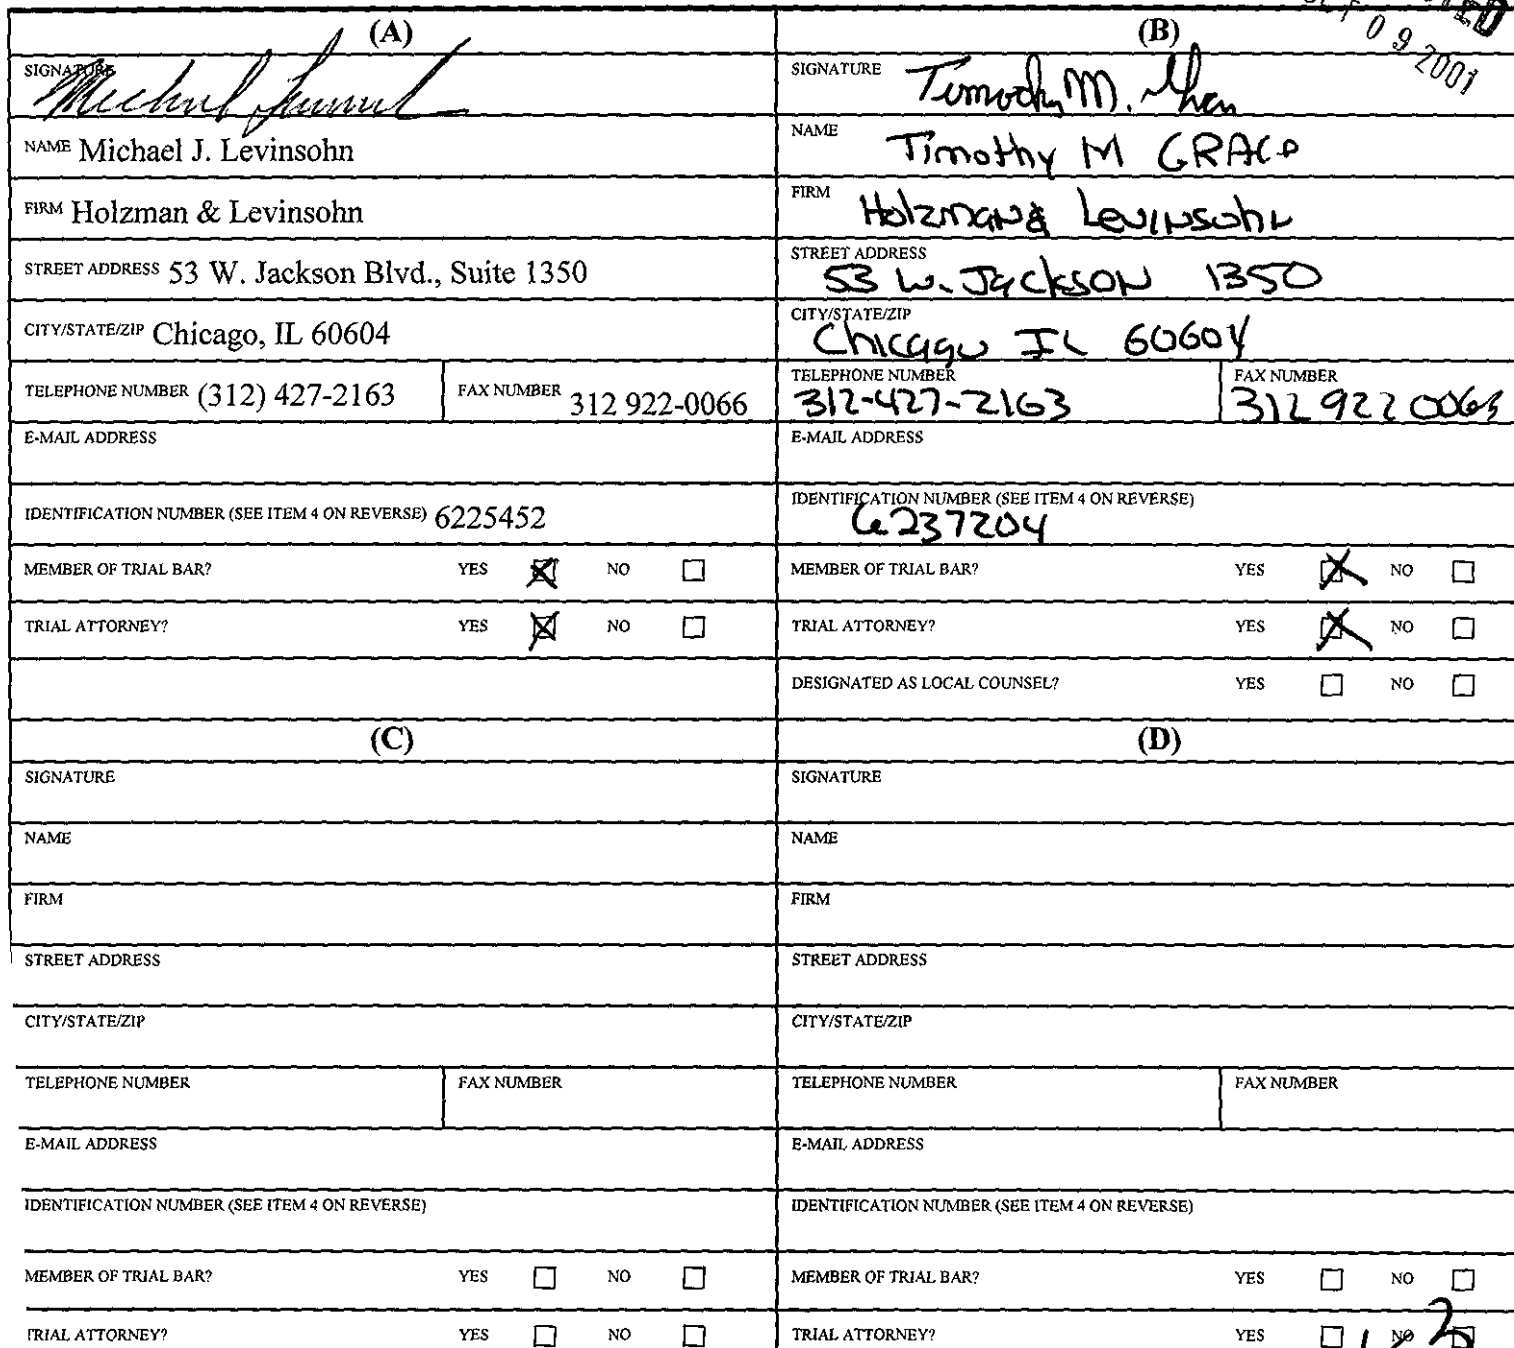 (A)
SIGNATURE
NAME Michael J. Levinsohn
FIRM Holzman & Levinsohn
STREET ADDRESS 53 W. Jackson Blvd., Suite 1350
CITY/STATE/ZIP Chicago, IL 60604
TELEPHONE NUMBER (312) 427-2163
FAX NUMBER 312 922-0066
E-MAIL ADDRESS
IDENTIFICATION NUMBER (SEE ITEM 4 ON REVERSE) 6225452
MEMBER OF TRIAL BAR? YES NO
TRIAL ATTORNEY? YES NO
(B)
09 2001
SIGNATURE Timothy M.
NAME Timothy M GRACE
FIRM Holzman & Levinsohn
STREET ADDRESS 53 W. Jackson 1350
CITY/STATE/ZIP Chicago IL 60604
TELEPHONE NUMBER 312-427-2163
FAX NUMBER 312 922 006
E-MAIL ADDRESS
IDENTIFICATION NUMBER (SEE ITEM 4 ON REVERSE)
6237204
MEMBER OF TRIAL BAR? YES NO
TRIAL ATTORNEY? YES NO
DESIGNATED AS LOCAL COUNSEL? YES NO
(C)
SIGNATURE
NAME
FIRM
STREET ADDRESS
CITY/STATE/ZIP
TELEPHONE NUMBER
FAX NUMBER
E-MAIL ADDRESS
IDENTIFICATION NUMBER (SEE ITEM 4 ON REVERSE)
MEMBER OF TRIAL BAR? YES NO
TRIAL ATTORNEY? YES NO
(D)
SIGNATURE
NAME
FIRM
STREET ADDRESS
CITY/STATE/ZIP
TELEPHONE NUMBER
FAX NUMBER
E-MAIL ADDRESS
IDENTIFICATION NUMBER (SEE ITEM 4 ON REVERSE)
MEMBER OF TRIAL BAR? YES NO
TRIAL ATTORNEY? YES NO